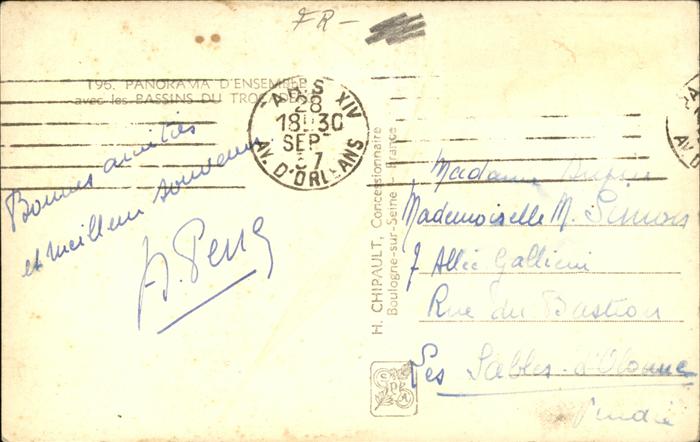 FR-
196. PANORAMA D'ENSEMBLE
avec les BASSINS DU TROCADERO
PARIS XIV
28
18H30
SEPT
37
AV. D'ORLEANS
Bonnes amitiés
et meilleur souvenir
H. CHIPAULT, Concessionnaire
Boulogne-sur-Seine - France
Madame
Mademoiselle M. Simon
7 Allée Gallieni
Rue du Bastion
Les Sables-d'Olonne
Vendée